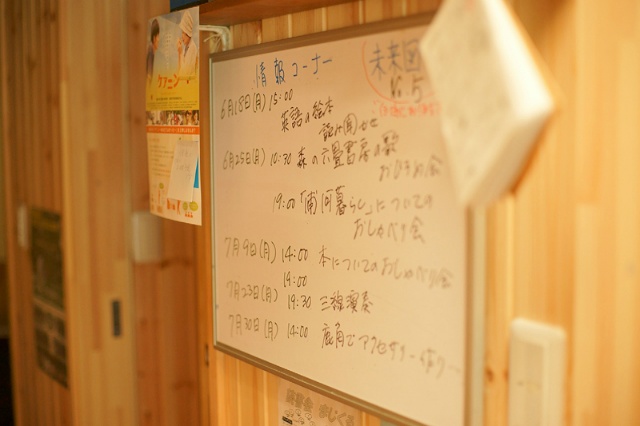 情報コーナー
未来図
No.5
6月18日(月) 15:00
英語の絵本
読み聞かせ
6月25日(月) 10:30 森の六畳書房の
おしゃべり会
19:00 「浦河暮らし」についての
おしゃべり会
7月9日(月) 14:00 本についてのおしゃべり会
19:00
7月23日(月) 19:30 三線演奏
7月30日(月) 14:00 鹿角でアクセサリー作り
ケアニン